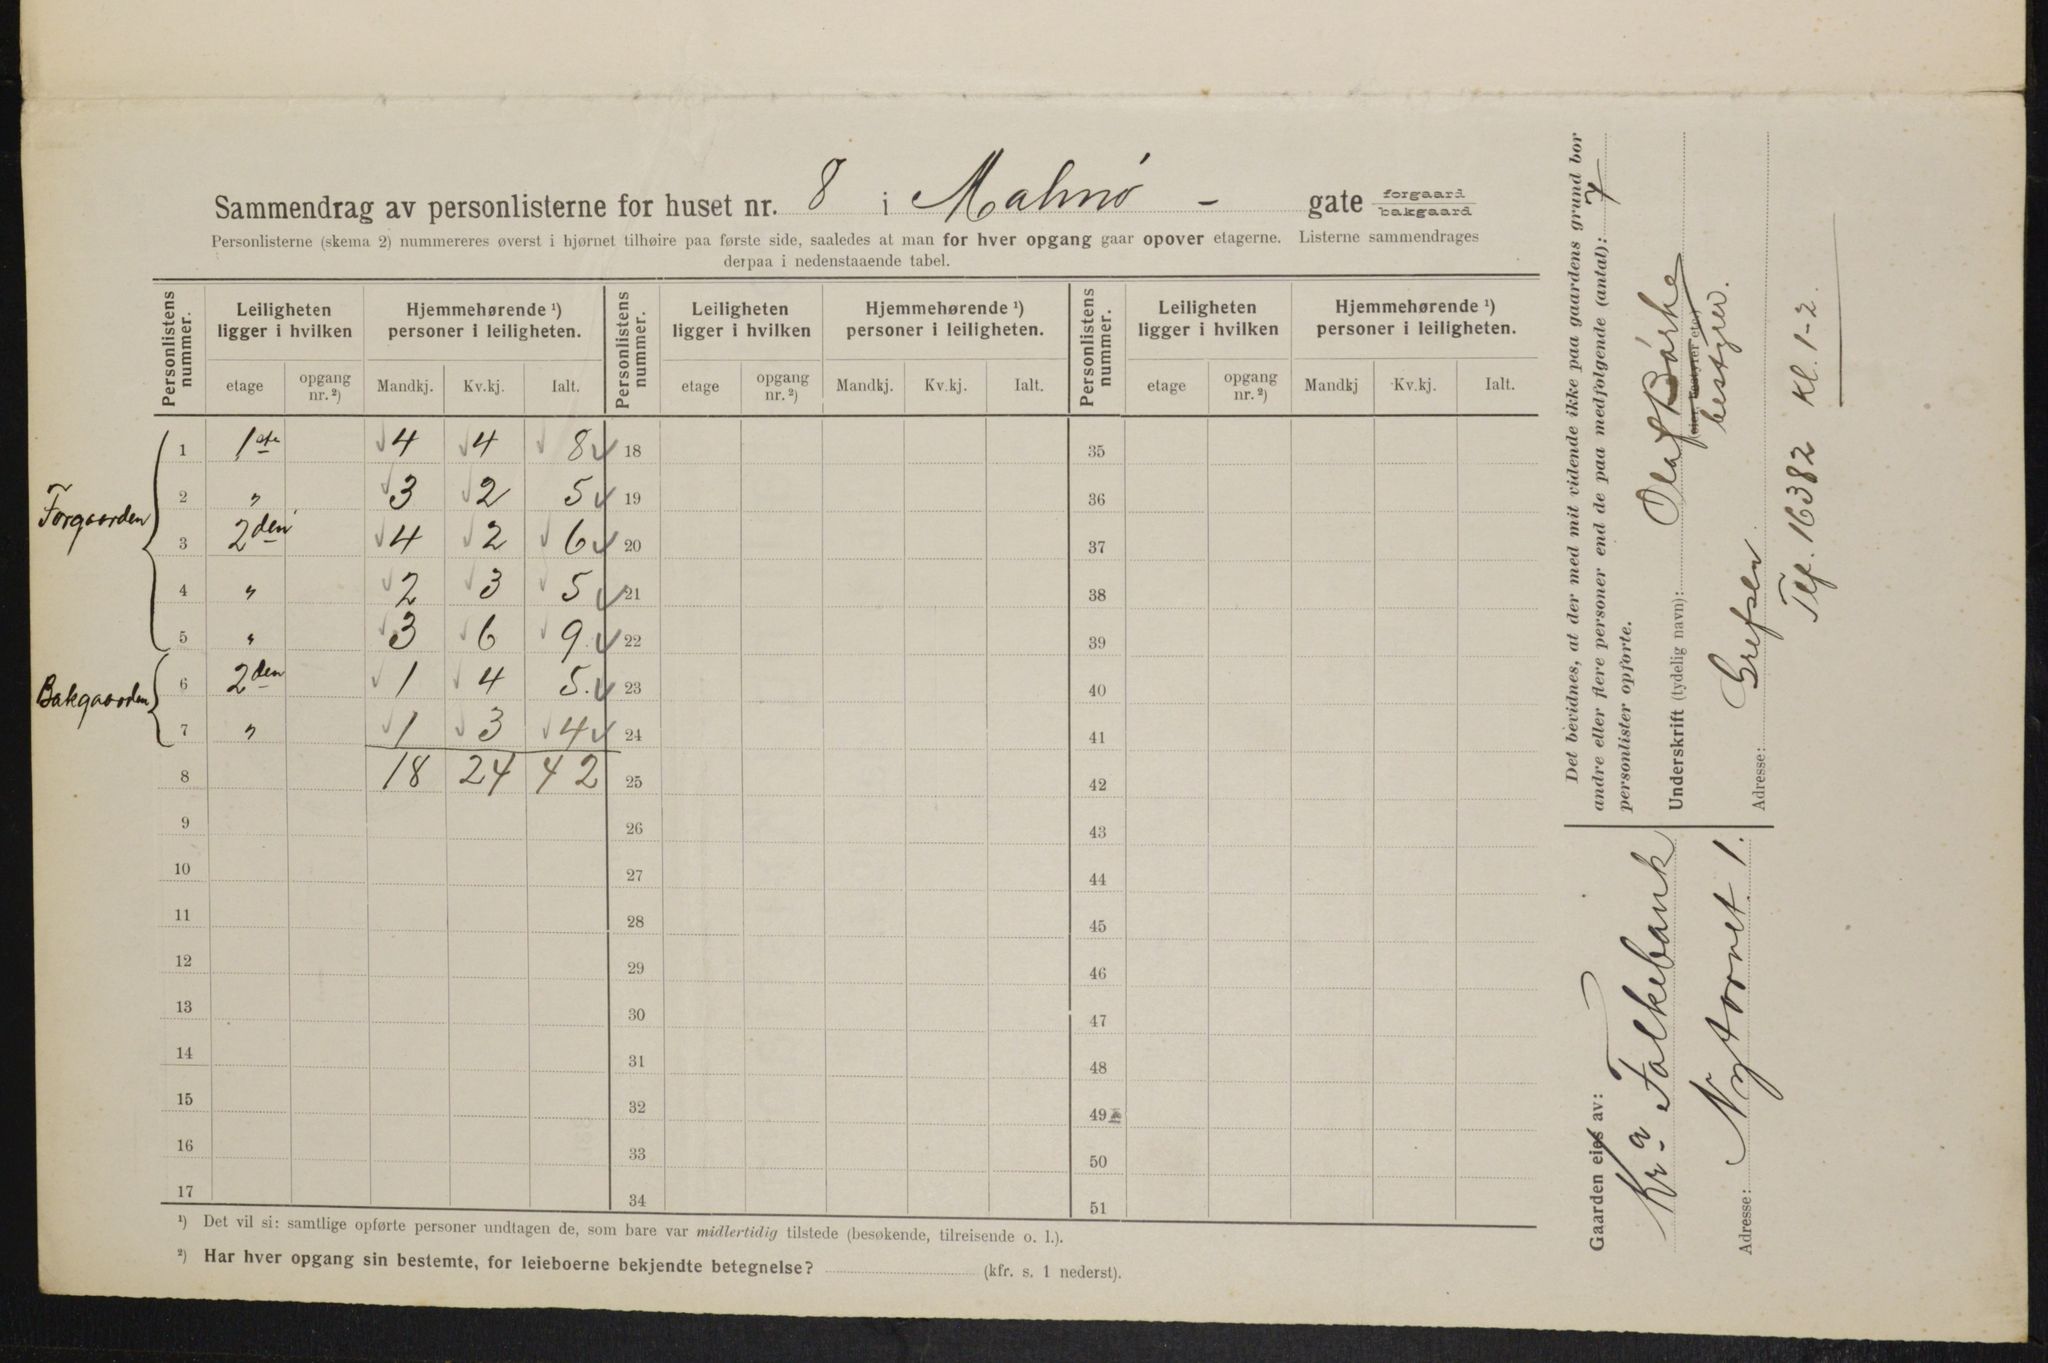 Sammendrag av personlisterne for huset nr. 8 i Malmö - gate forgaard bakgaard
Personlisterne (skema 2) nummereres øverst i hjørnet tilhøire paa første side, saaledes at man for hver opgang gaar opover etagerne. Listerne sammendrages
derpaa i nedenstaaende tabel.
Personlistens nummer. Leiligheten ligger i hvilken Hjemmehørende ¹) personer i leiligheten. Personlistens nummer. Leiligheten ligger i hvilken Hjemmehørende ¹) personer i leiligheten. Personlistens nummer. Leiligheten ligger i hvilken Hjemmehørende ¹) personer i leiligheten.
etage opgang nr. ²) Mandkj. Kv.kj. Ialt. etage opgang nr. ²) Mandkj. Kv.kj. Ialt. etage opgang nr. ²) Mandkj Kv.kj. Ialt.
Forgaarden
1 1ste 4 4 8 18 35
2 " 3 2 5 19 36
3 2den 4 2 6 20 37
4 " 2 3 5 21 38
5 " 3 6 9 22 39
Bakgaarden
6 2den 1 4 5. 23 40
7 " 1 3 4 24 41
8 18 24 42 25 42
9 26 43
10 27 44
11 28 45
12 29 46
13 30 47
14 31 48
15 32 49
16 33 50
17 34 51
¹) Det vil si: samtlige opførte personer undtagen de, som bare var midlertidig tilstede (besøkende, tilreisende o. l.).
²) Har hver opgang sin bestemte, for leieboerne bekjendte betegnelse? (kfr. s. 1 nederst).
Det bevidnes, at der med mit vidende ikke paa gaardens grund bor
andre eller flere personer end de paa medfølgende (antal): 7
personlister opførte.
Underskrift (tydelig navn): Olaf
(eier, bestyrer etc.)
bestyrer.
Adresse: Grefsen.
Tlf. 16382 Kl. 1-2.
Gaarden eies av:
Kra Folkebank
Adresse: Nytorvet 1.